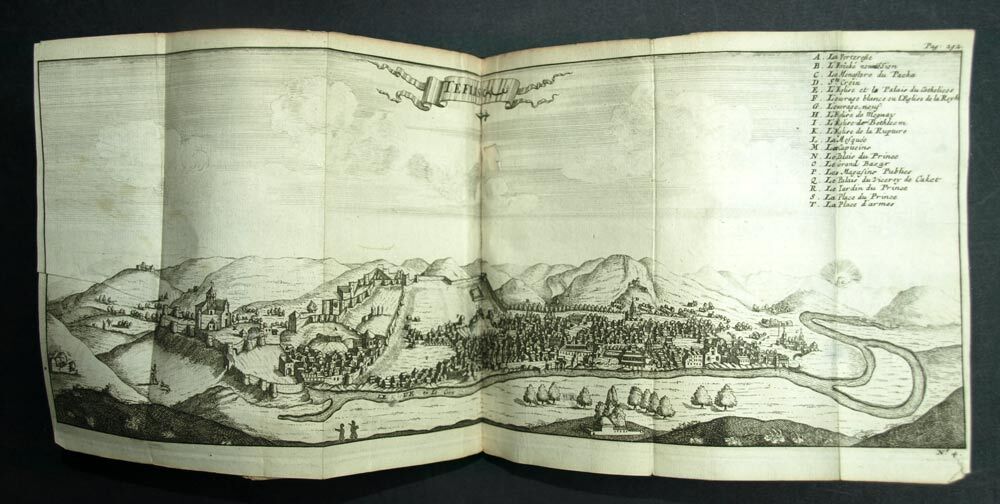 Pag. 292
TEFLIS
A. La Forteresse
B. L'Evêché
C. La Monastere du Pacha
D. Ste Croix
E. L'Eglise et le Palais du Catholicos
F. L'ouvrage blance ou L'Eglise de la Reyne
G. L'ouvrage neuf
H. L'Eglise de Mognay
I. L'Eglise de Bethleem
K. L'Eglise de la Rupture
L. La Mosquée
M. Capucins
N. Le Palais du Prince
O. Le Grand Bazar
P. Les Magasins Publics
Q. Le Palais du Viceroy de Caket
R. Le Jardin du Prince
S. La Place du Prince
T. La Place d'armes
N° 4